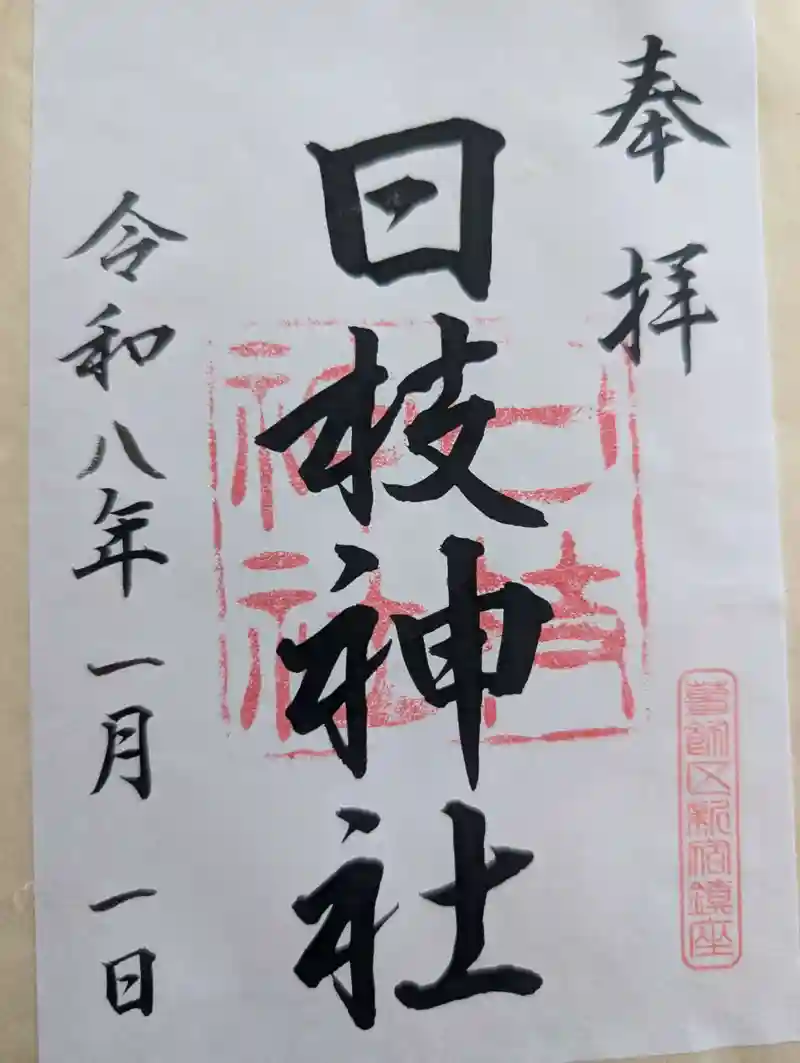 奉拝
葛飾区新宿鎮座
日枝神社
日枝
神社
令和八年一月一日